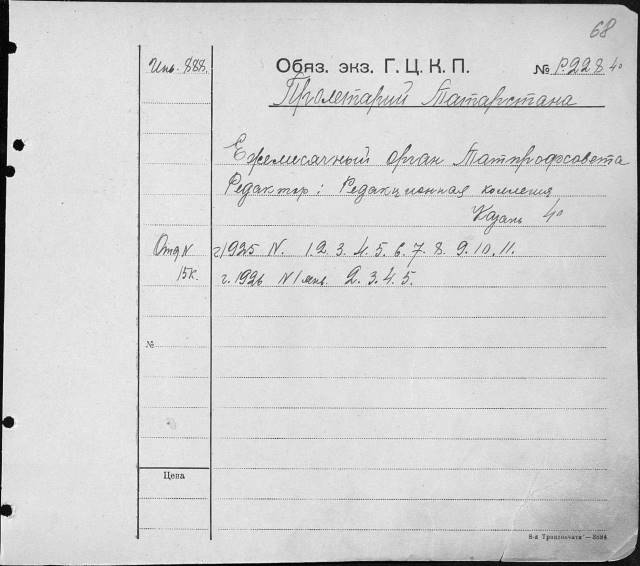 68
Инв. 888.
Обяз. экз. Г. Ц. К. П. № Р.228 4°
Пролетарий Татарстана
Ежемесячный орган Татпрофсовета
Редактор: Редакционная коллегия
Казань 4°
Отд N г 1925 N. 1. 2. 3. 4. 5. 6. 7. 8. 9. 10. 11.
15к. г. 1926 N 1 янв. 2. 3. 4. 5.
№
Цена